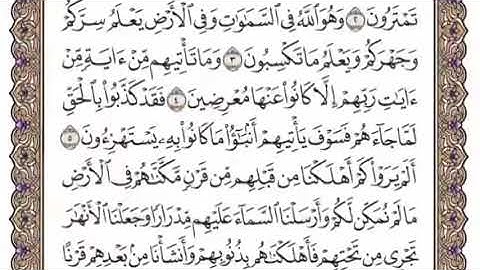 تَمْتَرُونَ ٢ وَهُوَ ٱللَّهُ فِى ٱلسَّمَٰوَٰتِ وَفِى ٱلْأَرْضِ يَعْلَمُ سِرَّكُمْ
وَجَهْرَكُمْ وَيَعْلَمُ مَا تَكْسِبُونَ ٣ وَمَا تَأْتِيهِم مِّنْ ءَايَةٍ مِّنْ
ءَايَٰتِ رَبِّهِمْ إِلَّا كَانُوا۟ عَنْهَا مُعْرِضِينَ ٤ فَقَدْ كَذَّبُوا۟ بِٱلْحَقِّ
لَمَّا جَآءَهُمْ فَسَوْفَ يَأْتِيهِمْ أَنۢبَٰٓؤُا۟ مَا كَانُوا۟ بِهِۦ يَسْتَهْزِءُونَ ٥
أَلَمْ يَرَوْا۟ كَمْ أَهْلَكْنَا مِن قَبْلِهِم مِّن قَرْنٍ مَّكَّنَّٰهُمْ فِى ٱلْأَرْضِ
مَا لَمْ نُمَكِّن لَّكُمْ وَأَرْسَلْنَا ٱلسَّمَآءَ عَلَيْهِم مِّدْرَارًا وَجَعَلْنَا ٱلْأَنْهَٰرَ
تَجْرِى مِن تَحْتِهِمْ فَأَهْلَكْنَٰهُم بِذُنُوبِهِمْ وَأَنشَأْنَا مِنۢ بَعْدِهِمْ قَرْنًا